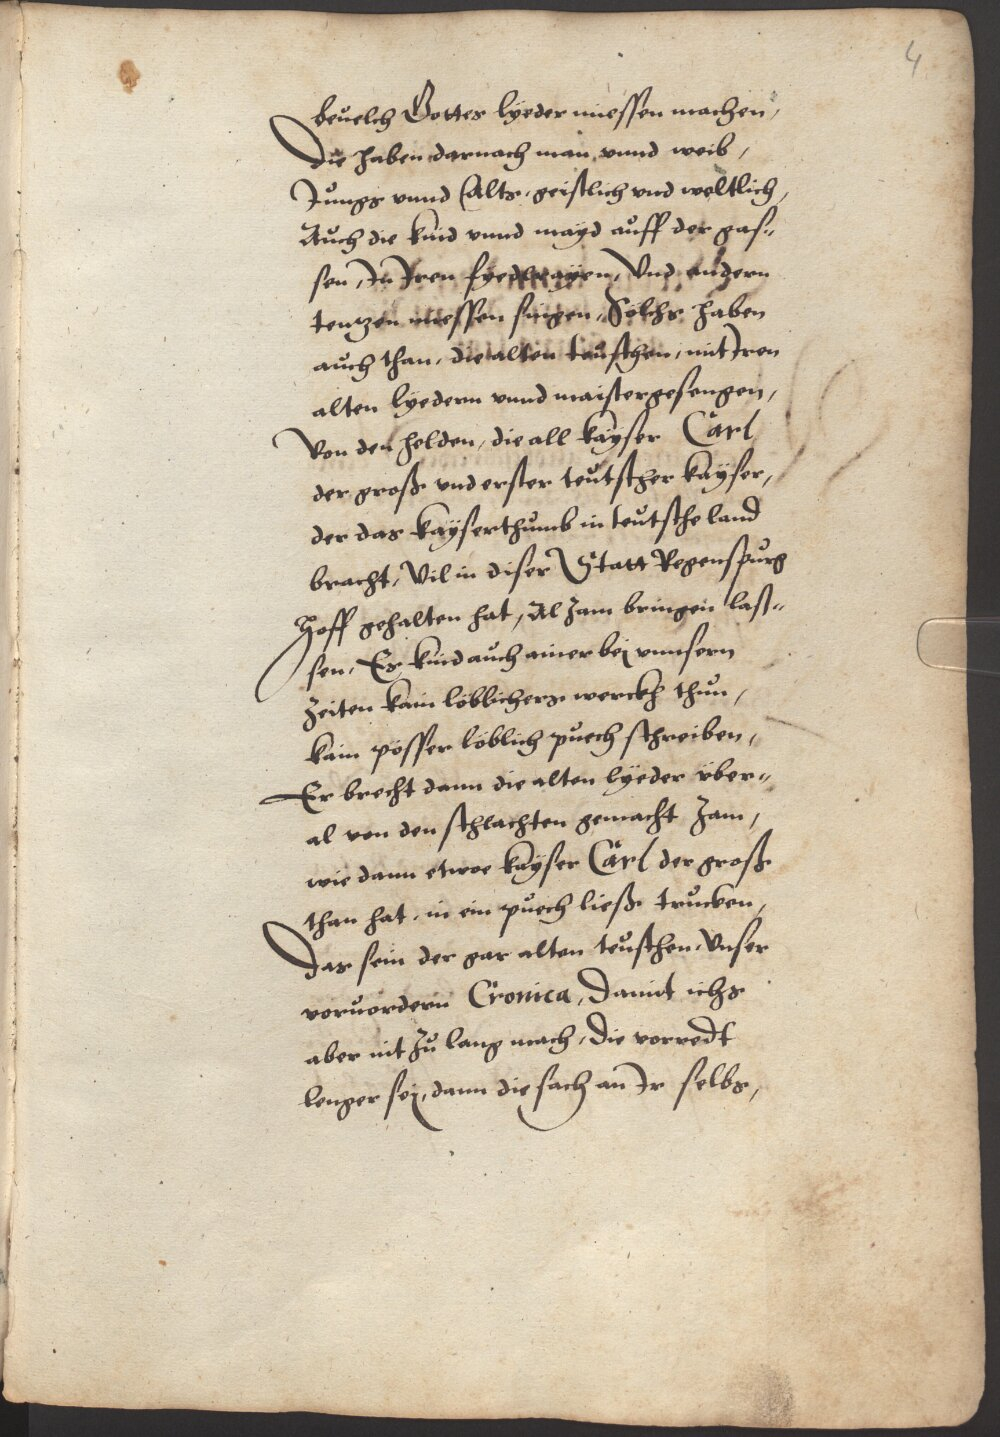 4
beuelch Gottes lyeder miessen machen,
Die haben darnach man vnnd weib,
Jungs vnnd Alts, geistlich vnd weltlich,
Auch die kind vnnd mayd auff der gas-
sen, In Iren Vnd andern
tentzen miessen singen, Solchs haben
auch than, die alten teutschen, mit Iren
alten lyedern vnnd maistergesengen,
Von den helden, die all kayser Carl
der groß vnd erster teutscher kayser,
der das kayserthumb in teutsche land
bracht, Vil in diser Statt Regenspurg
Hoff gehalten hat, Al zam bringen las-
sen, Es kind auch ainer bei vnnsern
zeiten kain löblichers werckh thun,
kain pösser löblich puech schreiben,
Er brecht dann die alten lyeder über-
al von den schlachten gemacht zam,
wie dann etwoe kayser Carl der groß
than hat, in ein puech ließ trucken,
Das sein der gar alten teutschen, Vnser
voruordern Cronica, Damit ichs
aber nit zu lang mach, Die vorredt
lenger sei, dann die sach an Ir selbs,